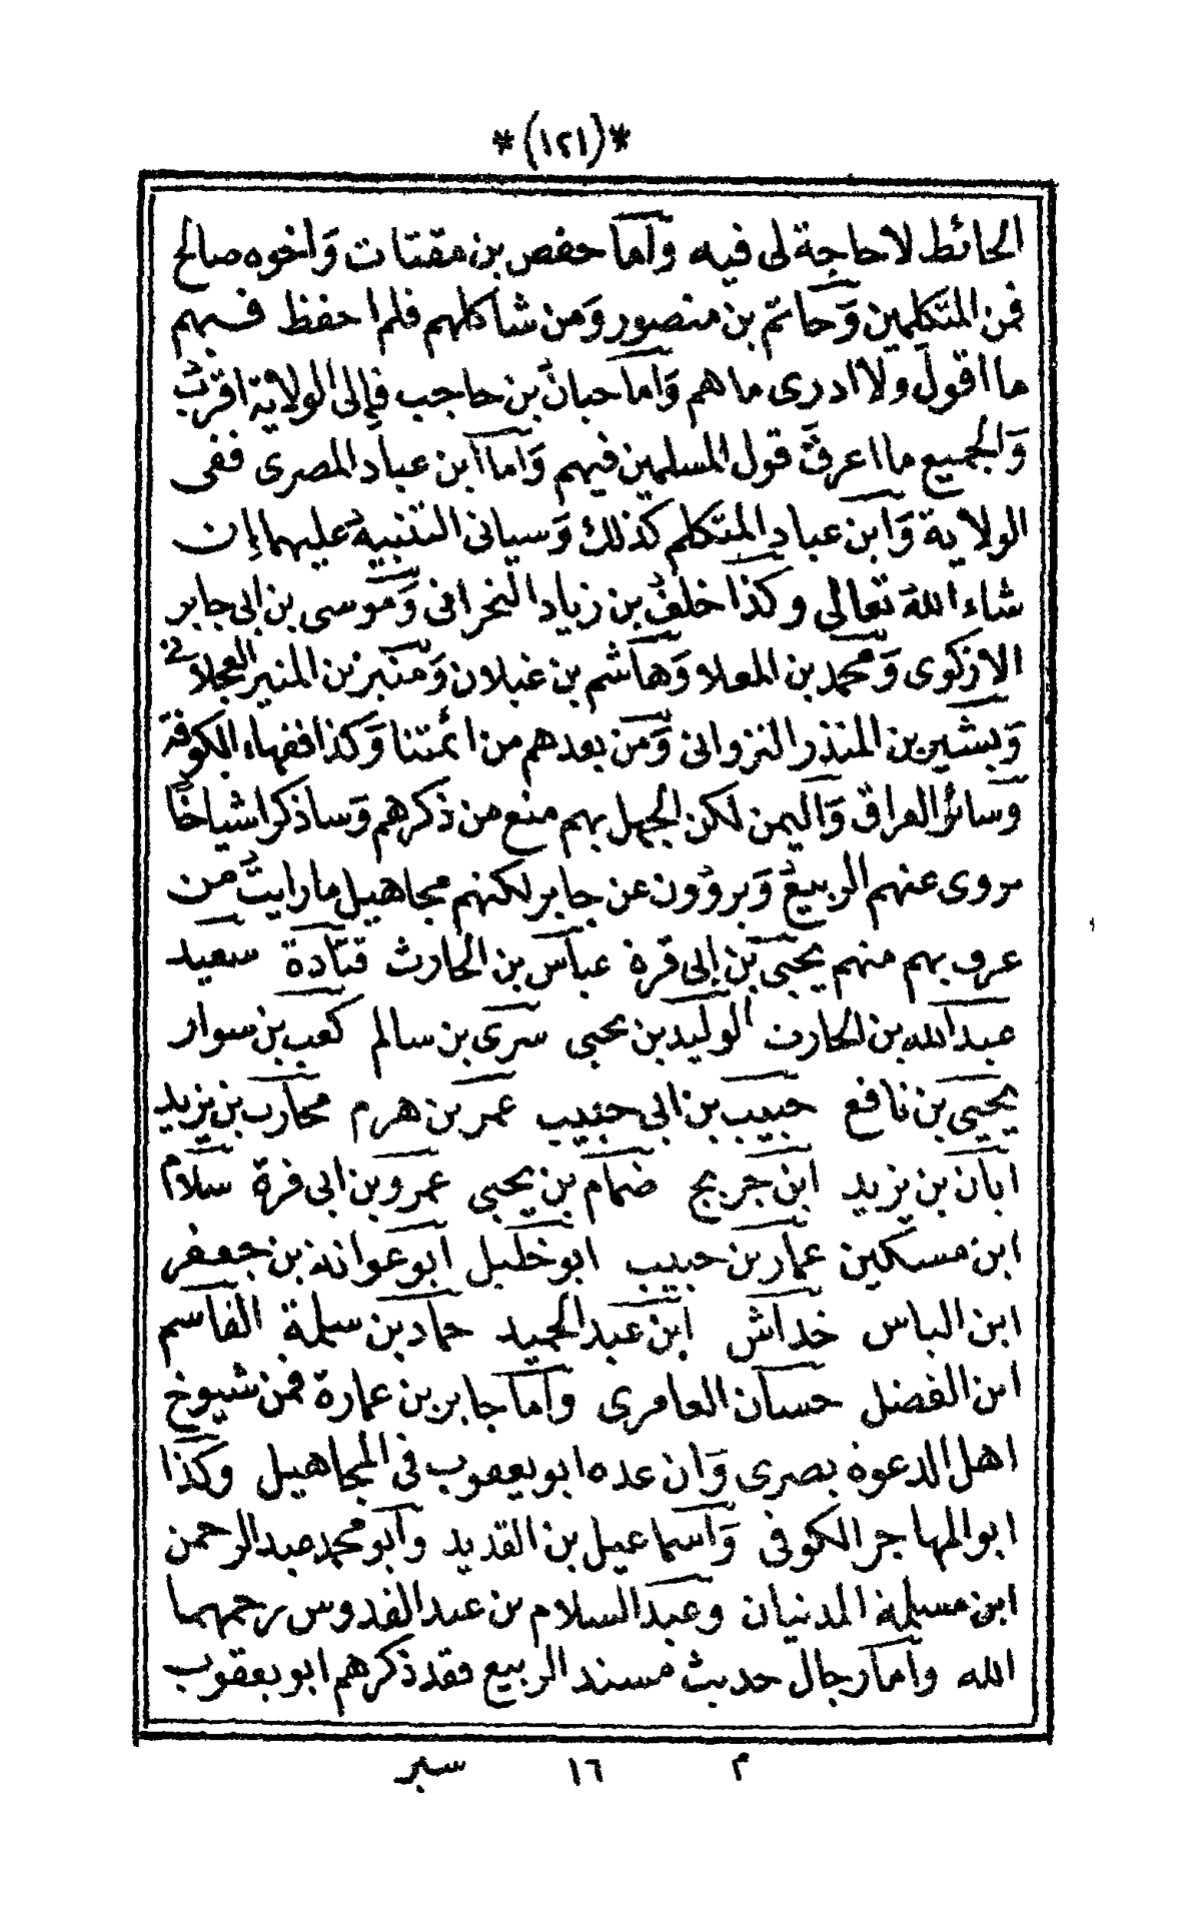 *(١٢١)*
الحائط لاحاجة لى فيه وأما حفص بن مقتات وَاخوه صالح
فمن المتكلمين وَحاتم بن منصور وَمن شاكلهم فلم احفظ فيهم
ما اقول ولا ادرى ما هم وَاما حبان بن حاجب فإلى الولاية اقرب
وَالجميع ما اعرف قول المسلمين فيهم وَاما ابن عباد المصرى ففى
الولاية وَابن عباد المتكلم كذلك وَسياتى التنبيه عليهما إن
شاء الله تعالى وكذا خلف بن زياد البحرانى وَموسى بن ابى جابر
الازكوى وَمحمد بن المعلا وَهاشم بن غيلان وَمنير بن المنير العجلانى
وَبشير بن المنذر النزوانى وَمن بعدهم من ائمتنا وَكذا فقهاء الكوفة
وَسائر العراق وَاليمن لكن الجهل بهم منع من ذكرهم وَساذكر اشياخًا
يروى عنهم الربيع وَيروون عن جابر لكنهم مجاهيل ما رايتُ من
عرف بهم منهم يحيى بن ابى قرة عباس بن الحارث قتادة سعيد
عبد الله بن الحارث الوليد بن يحيى سرى بن سالم كعب بن سوار
يحيى بن نافع حبيب بن ابى حبيب عمر بن هرم محارب بن يزيد
ابان بن يزيد ابن جريج ضمام بن يحيى عمرو بن ابى قرة سلام
ابن مسكين عمار بن حبيب ابو خليل ابو عوانة بن جعفر
ابن الباس خداش ابن عبد الحميد حماد بن سلمة القاسم
ابن الفضل حسان العامرى وأما جابر بن عمارة فمن شيوخ
اهل الدعوة بصرى وَان عده ابو يعقوب فى المجاهيل وكذا
ابو المهاجر الكوفى وَاسماعيل بن القديد وأبو محمد عبد الرحمن
ابن مسلمة المدنيان وعبد السلام بن عبد القدوس رحمهما
الله وأما رجال حديث مسند الربيع فقد ذكرهم ابو يعقوب
م ١٦ سير